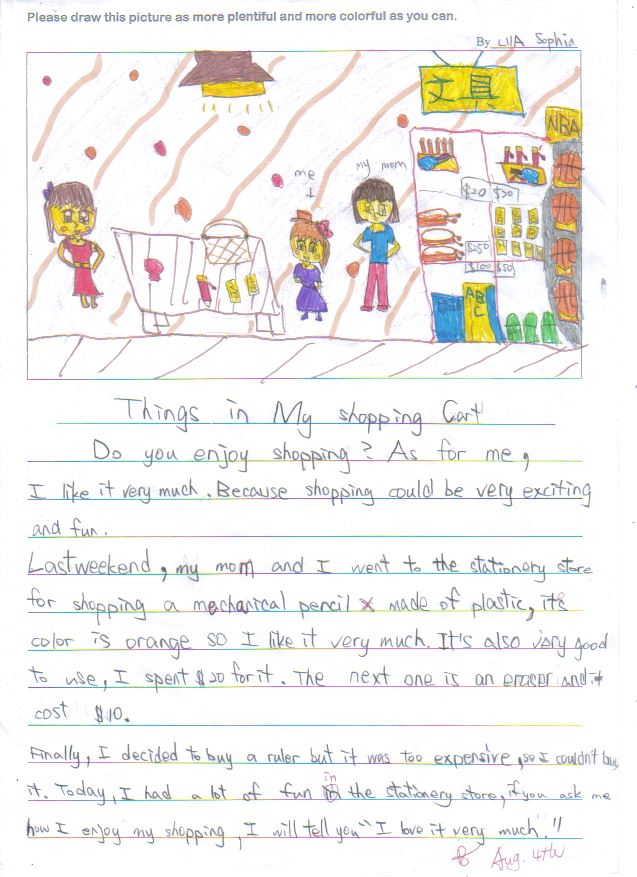 Please draw this picture as more plentiful and more colorful as you can.
By LIIA Sophia
文具
NBA
me
my mom
$20 $30
$250
$100 $50
ABC
Things in My shopping Cart
Do you enjoy shopping? As for me,
I like it very much. Because shopping could be very exciting
and fun.
Last weekend, my mom and I went to the stationery store
for shopping a mechanical pencil made of plastic, it's
color is orange so I like it very much. It's also very good
to use, I spent $20 for it. The next one is an eraser and it
cost $10.
Finally, I decided to buy a ruler but it was too expensive, so I couldn't buy
it. Today, I had a lot of fun in the stationery store, if you ask me
how I enjoy my shopping, I will tell you "I love it very much."
Aug. 4th